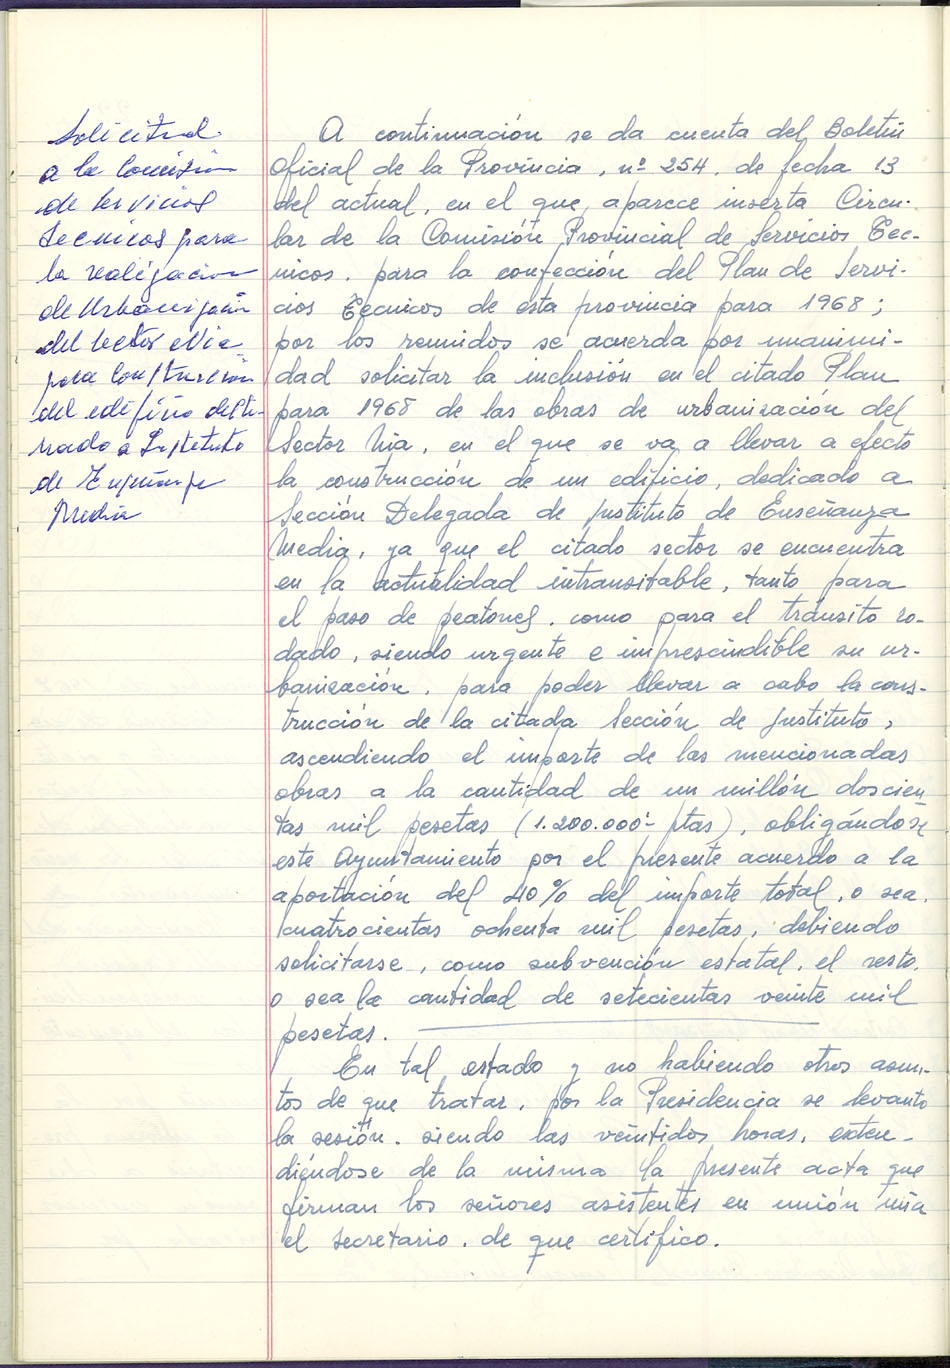 Solicitud
a la Comisión
de Servicios
Tecnicos para
la realización
de Urbanización
del Sector Nia
para Construcción
del edificio desti-
nado a Instituto
de Enseñanza
Media
A continuación se da cuenta del Boletin
Oficial de la Provincia, nº 254, de fecha 13
del actual, en el que aparece inserta Circu-
lar de la Comisión Provincial de Servicios Tec-
nicos, para la confección del Plan de Servi-
cios Tecnicos de esta provincia para 1968;
por los reunidos se acuerda por unanimi-
dad solicitar la inclusión en el citado Plan
para 1968 de las obras de urbanización del
Sector Nia, en el que se va a llevar a efecto
la construcción de un edificio, dedicado a
Sección Delegada de Instituto de Enseñanza
Media, ya que el citado sector se encuentra
en la actualidad intransitable, tanto para
el paso de peatones, como para el tránsito ro-
dado, siendo urgente e imprescindible su ur-
banización, para poder llevar a cabo la cons-
trucción de la citada Sección de Instituto,
ascendiendo el importe de las mencionadas
obras a la cantidad de un millón doscien
tas mil pesetas (1.200.000'- ptas), obligándose
este Ayuntamiento por el presente acuerdo a la
aportación del 40% del importe total, o sea,
cuatrocientas ochenta mil pesetas, debiendo
solicitarse, como subvención estatal, el resto,
o sea la cantidad de setecientas veinte mil
pesetas.
En tal estado y no habiendo otros asun-
tos de que tratar, por la Presidencia se levanto
la sesión, siendo las veintidos horas, exten-
diéndose de la misma la presente acta que
firman los señores asistentes en unión
el secretario, de que certifico.